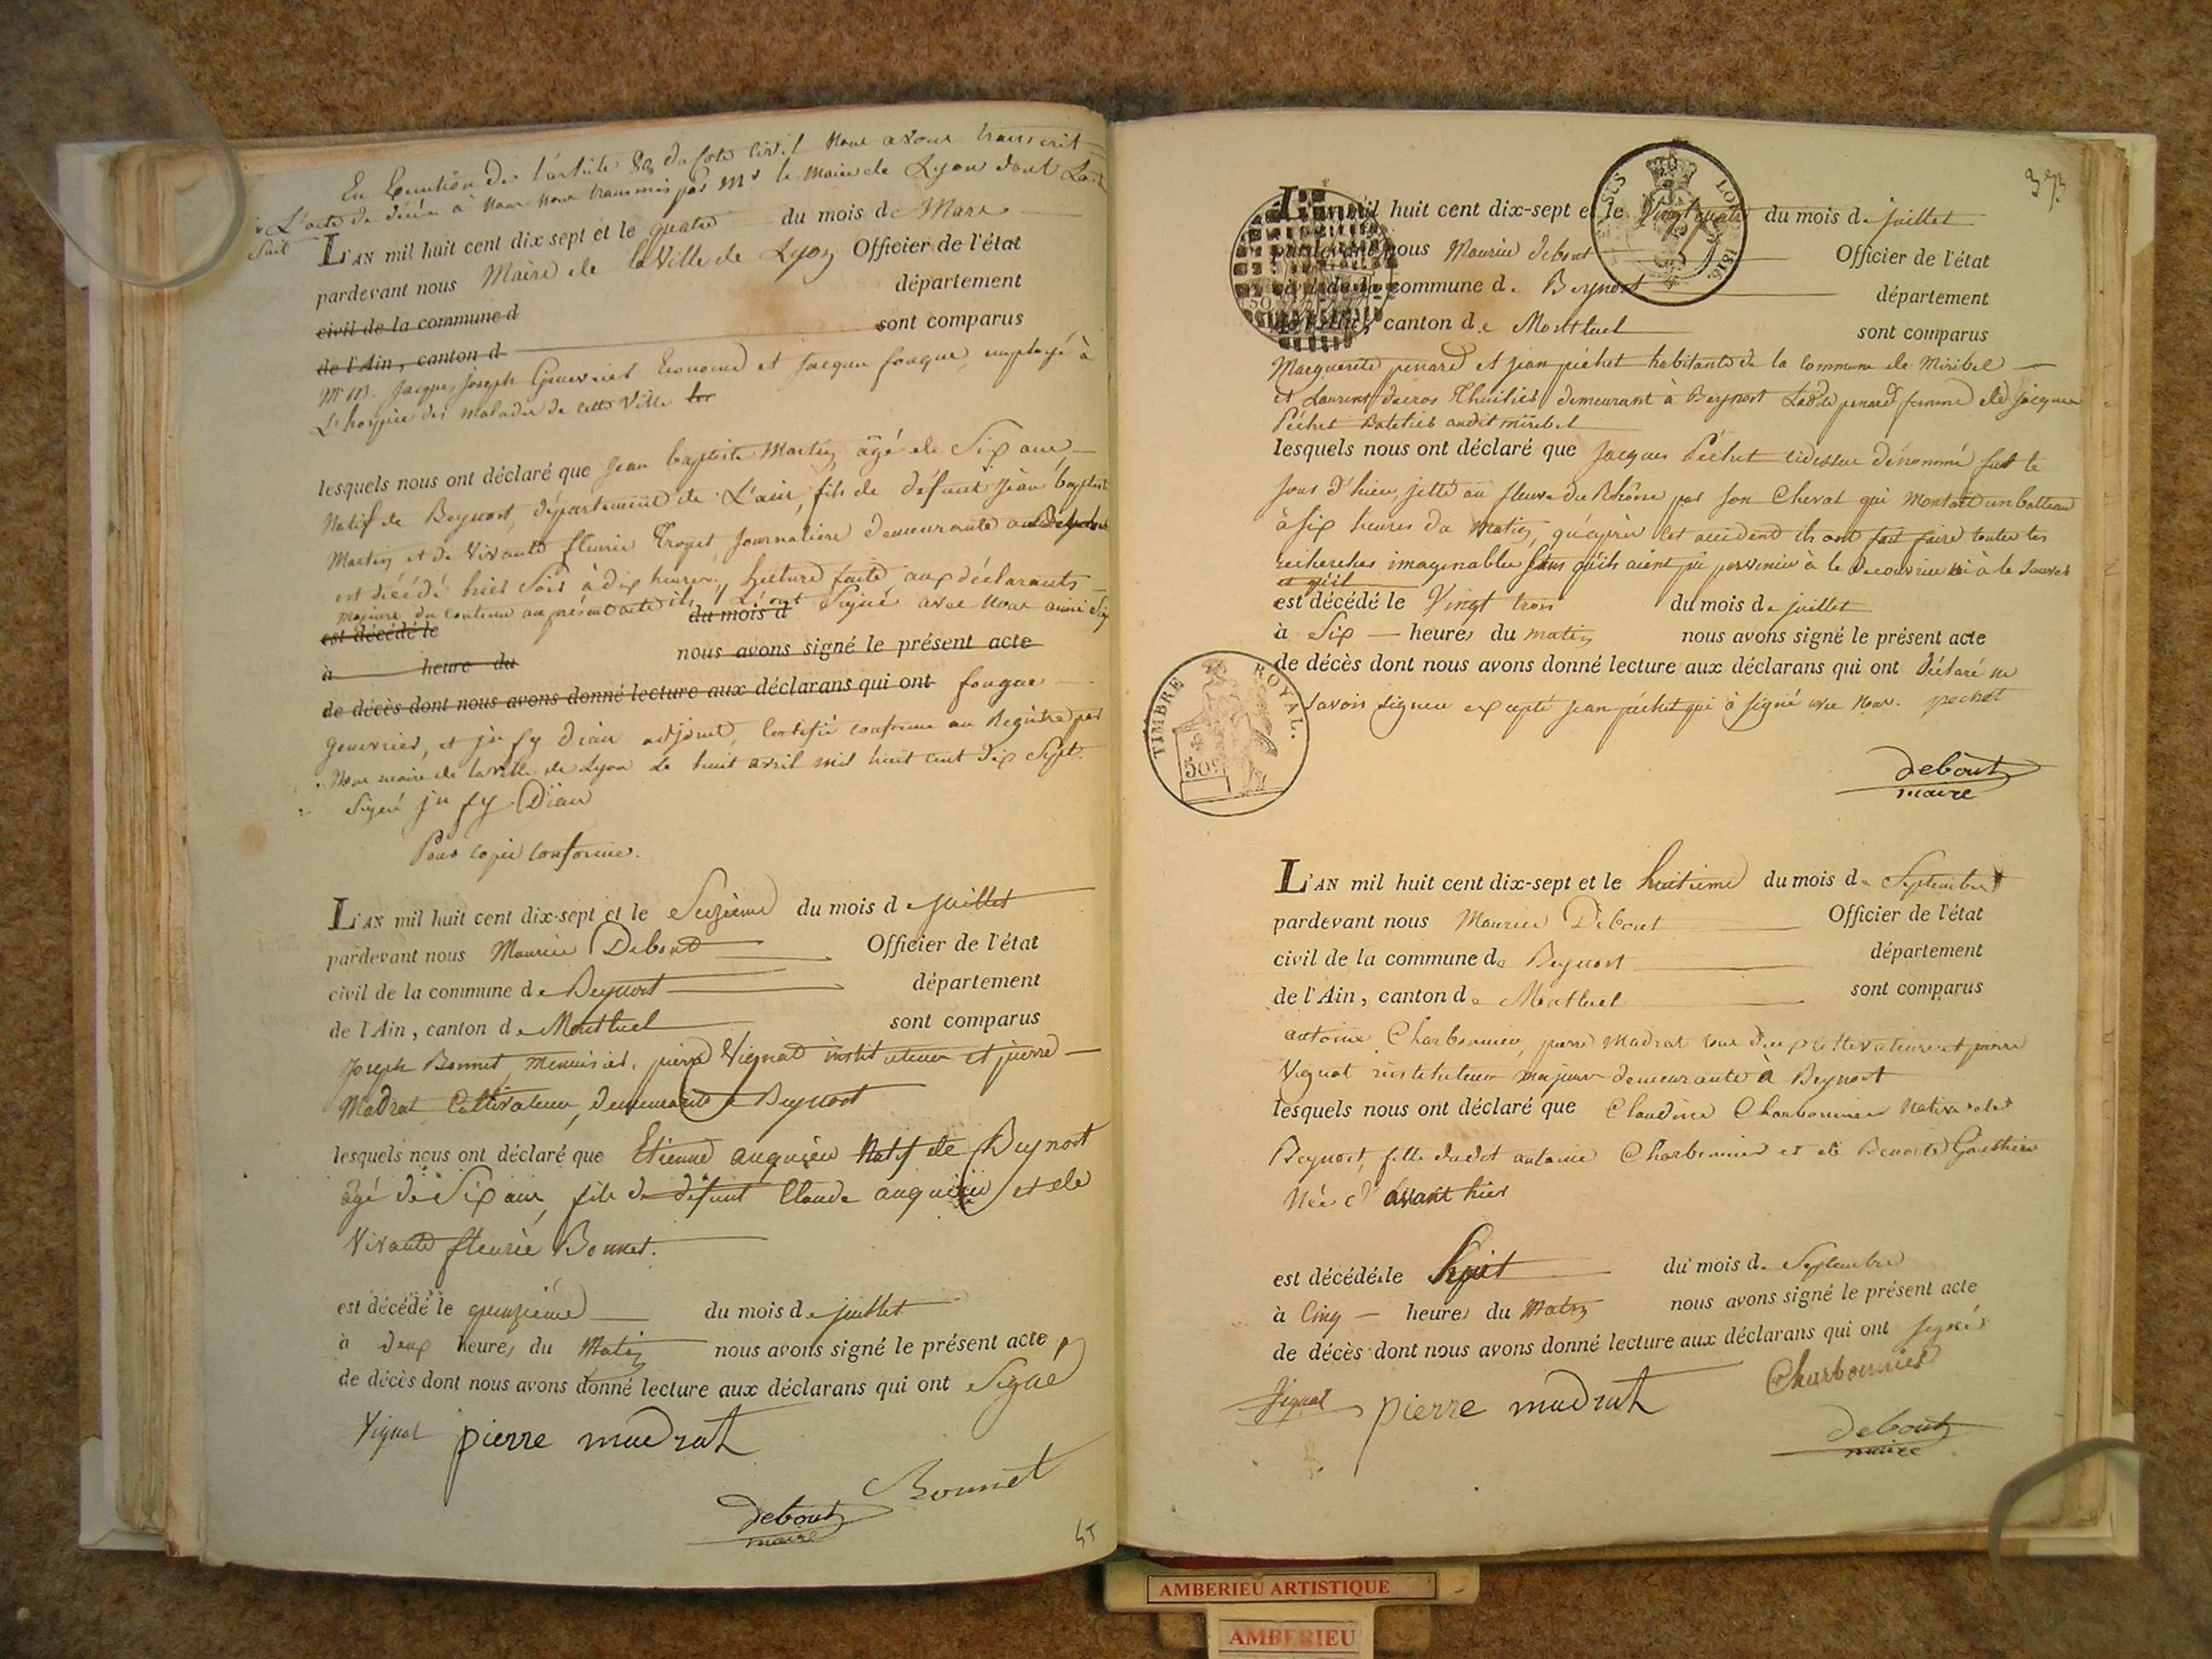 En Exécution de l'article 82 du Code Civil nous avons transcrit
L'acte de décès à nous transmis par Mr le Maire de Lyon dont La
suit
L'AN mil huit cent dix-sept et le quatre du mois de Mars
pardevant nous Maire de la Ville de Lyon Officier de l'état
civil de la commune d département
de l'Ain, canton d sont comparus
Mrs. Jacques Joseph Genevrier Econome et Jacques fougue, employé à
L'hospice des malades de cette Ville
lesquels nous ont déclaré que Jean baptiste Martin, âgé de Six ans
Natif de Beynost, département de L'ain, fils de défunt Jean baptiste
Martin et de Vivante fleurie Troquet Journalière demeurante
est décédé hier Soir à dix heures, Lecture faite aux déclarants
majeurs du contenu au présent acte ils l'ont Signé avec nous ainsi Signé
est décédé le du mois d
à heure du nous avons signé le présent acte
de décès dont nous avons donné lecture aux déclarans qui ont fougue
genevrier, et jn fy Dian adjoint, Certifié conforme au Registre par
Nous maire de la ville de Lyon Le huit avril mil huit cent dix Sept.
Signé jn fy Dian
Pour copie conforme.
L'AN mil huit cent dix-sept et le Seizième du mois de juillet
pardevant nous Maurice Debout Officier de l'état
civil de la commune de Beynost département
de l'Ain, canton de Montluel sont comparus
Joseph Bonnet, Menuisier, pierre Vignat instituteur et pierre
Madrat Cultivateur, demeurants à Beynost
lesquels nous ont déclaré que Etienne auquieu Natif de Beynost
âgé de Six ans, fils de défunt Claude auquieu et de
Vivante fleurie Bonnet.
est décédé le quinzième du mois de juillet
à deux heures du Matin nous avons signé le présent acte
de décès dont nous avons donné lecture aux déclarans qui ont Signé
Vignat pierre madrat
Bonnet
debout
maire
45
373
L'AN mil huit cent dix-sept et le Vingt quatre du mois de juillet
pardevant nous Maurice debout Officier de l'état
civil de la commune de Beynost département
de l'Ain, canton de Montluel sont comparus
Marguerite penard et jean péchet habitants de la commune de Miribel
et Laurent ducros Thuilier demeurant à Beynost Ladite penard femme de jacques
Péchet Batelier audit miribel
lesquels nous ont déclaré que Jacques Péchet cidessus dénommé fut le
jour d'hier, jetté au fleuve du Rhône par son Cheval qui Montoit un batteau
à six heures du Matin, qu'après cet accident ils ont fait faire toutes les
recherches imaginables sans qu'ils aient pu parvenir à le découvrir ni à le sauver
et qu'il
est décédé le Vingt trois du mois de juillet
à Six heures du matin nous avons signé le présent acte
de décès dont nous avons donné lecture aux déclarans qui ont Déclaré ne
savoir signer excepté jean péchet qui à signé avec nous. pechet
TIMBRE ROYAL.
50c
debout
maire
L'AN mil huit cent dix-sept et le huitième du mois de Septembre
pardevant nous Maurice Debout Officier de l'état
civil de la commune de Beynost département
de l'Ain, canton de Montluel sont comparus
antoine Charbonnier, pierre Madrat tous deux cultivateurs et pierre
Vignat instituteur majeurs demeurants à Beynost
lesquels nous ont déclaré que Claudine Charbonnier Native de
Beynost, fille dudit antoine Charbonnier et de Benoite Gauthier
Née d'avant hier
est décédée le Sept du mois de Septembre
à Cinq heures du Matin nous avons signé le présent acte
de décès dont nous avons donné lecture aux déclarans qui ont signés
Vignat pierre madrat Charbonnier
debout
maire
AMBERIEU ARTISTIQUE
AMBERIEU